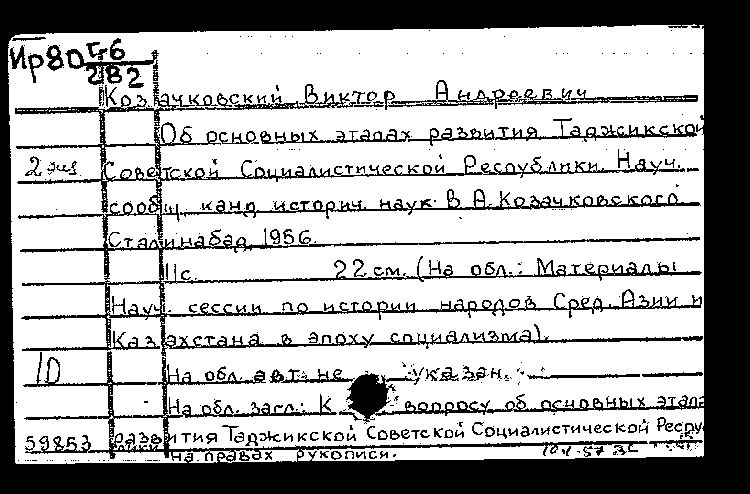 Ир80 Г-6
282
Козачковский Виктор Андреевич
Об основных этапах развития Таджикской
2 экз. Советской Социалистической Республики. Науч.
сообщ. канд. историч. наук В. А. Козачковского
Сталинабад, 1956.
11с. 22 см. (На обл.: Материалы
Науч. сессии по истории народов Сред. Азии и
Казахстана в эпоху социализма).
10 На обл. авт. не указан.
На обл. загл.: К вопросу об основных этапа
59853 развития Таджикской Советской Социалистической Респу
блики
на правах рукописи.